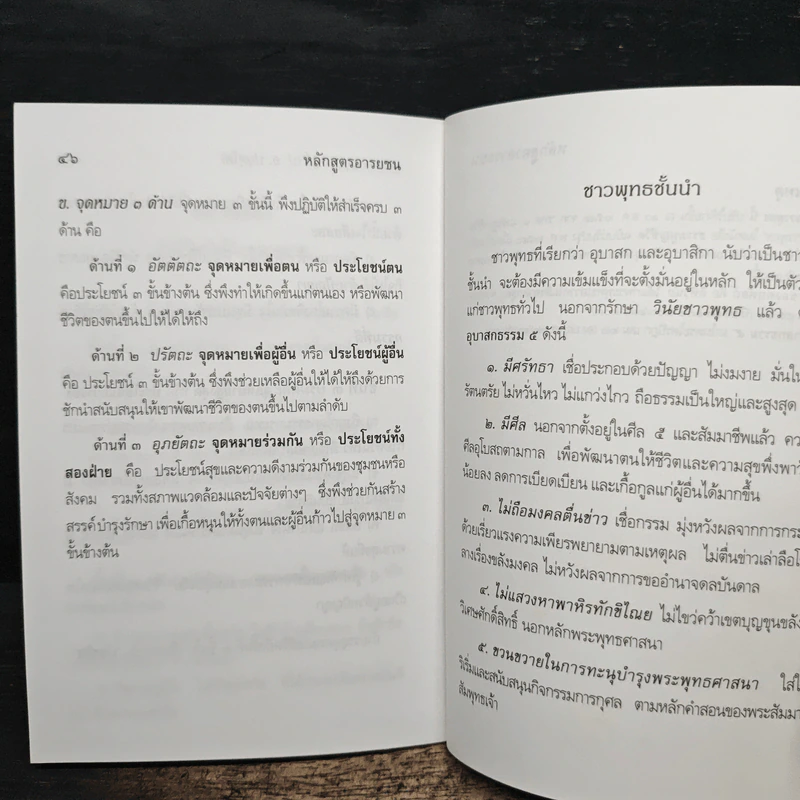 ๔๖
หลักสูตรอารยชน
ข. จุดหมาย ๓ ด้าน จุดหมาย ๓ ขั้นนี้ พึงปฏิบัติให้สำเร็จครบ ๓
ด้าน คือ
ด้านที่ ๑ อัตตัตถะ จุดหมายเพื่อตน หรือ ประโยชน์ตน
คือประโยชน์ ๓ ขั้นข้างต้น ซึ่งพึงทำให้เกิดขึ้นแก่ตนเอง หรือพัฒนา
ชีวิตของตนขึ้นไปให้ได้ให้ถึง
ด้านที่ ๒ ปรัตถะ จุดหมายเพื่อผู้อื่น หรือ ประโยชน์ผู้อื่น
คือ ประโยชน์ ๓ ขั้นข้างต้น ซึ่งพึงช่วยเหลือผู้อื่นให้ได้ให้ถึงด้วยการ
ชักนำสนับสนุนให้เขาพัฒนาชีวิตของตนขึ้นไปตามลำดับ
ด้านที่ ๓ อุภยัตถะ จุดหมายร่วมกัน หรือ ประโยชน์ทั้ง
สองฝ่าย คือ ประโยชน์สุขและความดีงามร่วมกันของชุมชนหรือ
สังคม รวมทั้งสภาพแวดล้อมและปัจจัยต่างๆ ซึ่งพึงช่วยกันสร้าง
สรรค์บำรุงรักษา เพื่อเกื้อหนุนให้ทั้งตนและผู้อื่นก้าวไปสู่จุดหมาย ๓
ขั้นข้างต้น
ชาวพุทธชั้นนำ
ชาวพุทธที่เรียกว่า อุบาสก และอุบาสิกา นับว่าเป็นชาว
ชั้นนำ จะต้องมีความเข้มแข็งที่จะตั้งมั่นอยู่ในหลัก ให้เป็นตัว
แก่ชาวพุทธทั่วไป นอกจากรักษา วินัยชาวพุทธ แล้ว
อุบาสกธรรม ๕ ดังนี้
๑. มีศรัทธา เชื่อประกอบด้วยปัญญา ไม่งมงาย มั่นใน
รัตนตรัย ไม่หวั่นไหว ไม่แกว่งไกว ถือธรรมเป็นใหญ่และสูงสุด
๒. มีศีล นอกจากตั้งอยู่ในศีล ๕ และสัมมาชีพแล้ว คว
ศีลอุโบสถตามกาล เพื่อพัฒนาตนให้ชีวิตและความสุขพึ่งพาวั
น้อยลง ลดการเบียดเบียน และเกื้อกูลแก่ผู้อื่นได้มากขึ้น
๓. ไม่ถือมงคลตื่นข่าว เชื่อกรรม มุ่งหวังผลจากการกระ
ด้วยเรี่ยวแรงความเพียรพยายามตามเหตุผล ไม่ตื่นข่าวเล่าลือโ
ลางเรื่องขลังมงคล ไม่หวังผลจากการขออำนาจดลบันดาล
๔. ไม่แสวงหาพาหิรทักขิไณย ไม่ไขว่คว้าเขตบุญขุนขลัง
วิเศษศักดิ์สิทธิ์ นอกหลักพระพุทธศาสนา
๕. ขวนขวายในการทะนุบำรุงพระพุทธศาสนา ใส่ใ
ริเริ่มและสนับสนุนกิจกรรมการกุศล ตามหลักคำสอนของพระสัมมา
สัมพุทธเจ้า